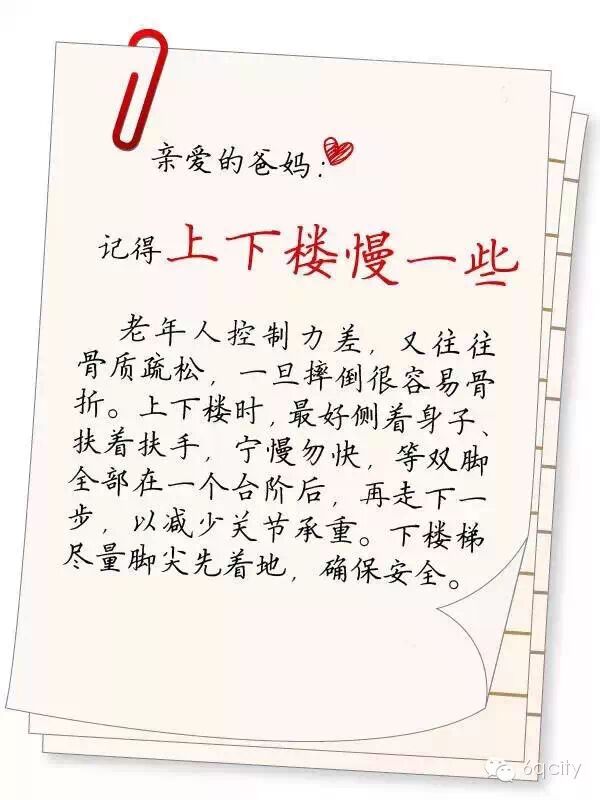 亲爱的爸妈：
记得上下楼慢一些
老年人控制力差，又往往
骨质疏松，一旦摔倒很容易骨
折。上下楼时，最好侧着身子、
扶着扶手，宁慢勿快，等双脚
全部在一个台阶后，再走下一
步，以减少关节承重。下楼梯
尽量脚尖先着地，确保安全。
6qcity